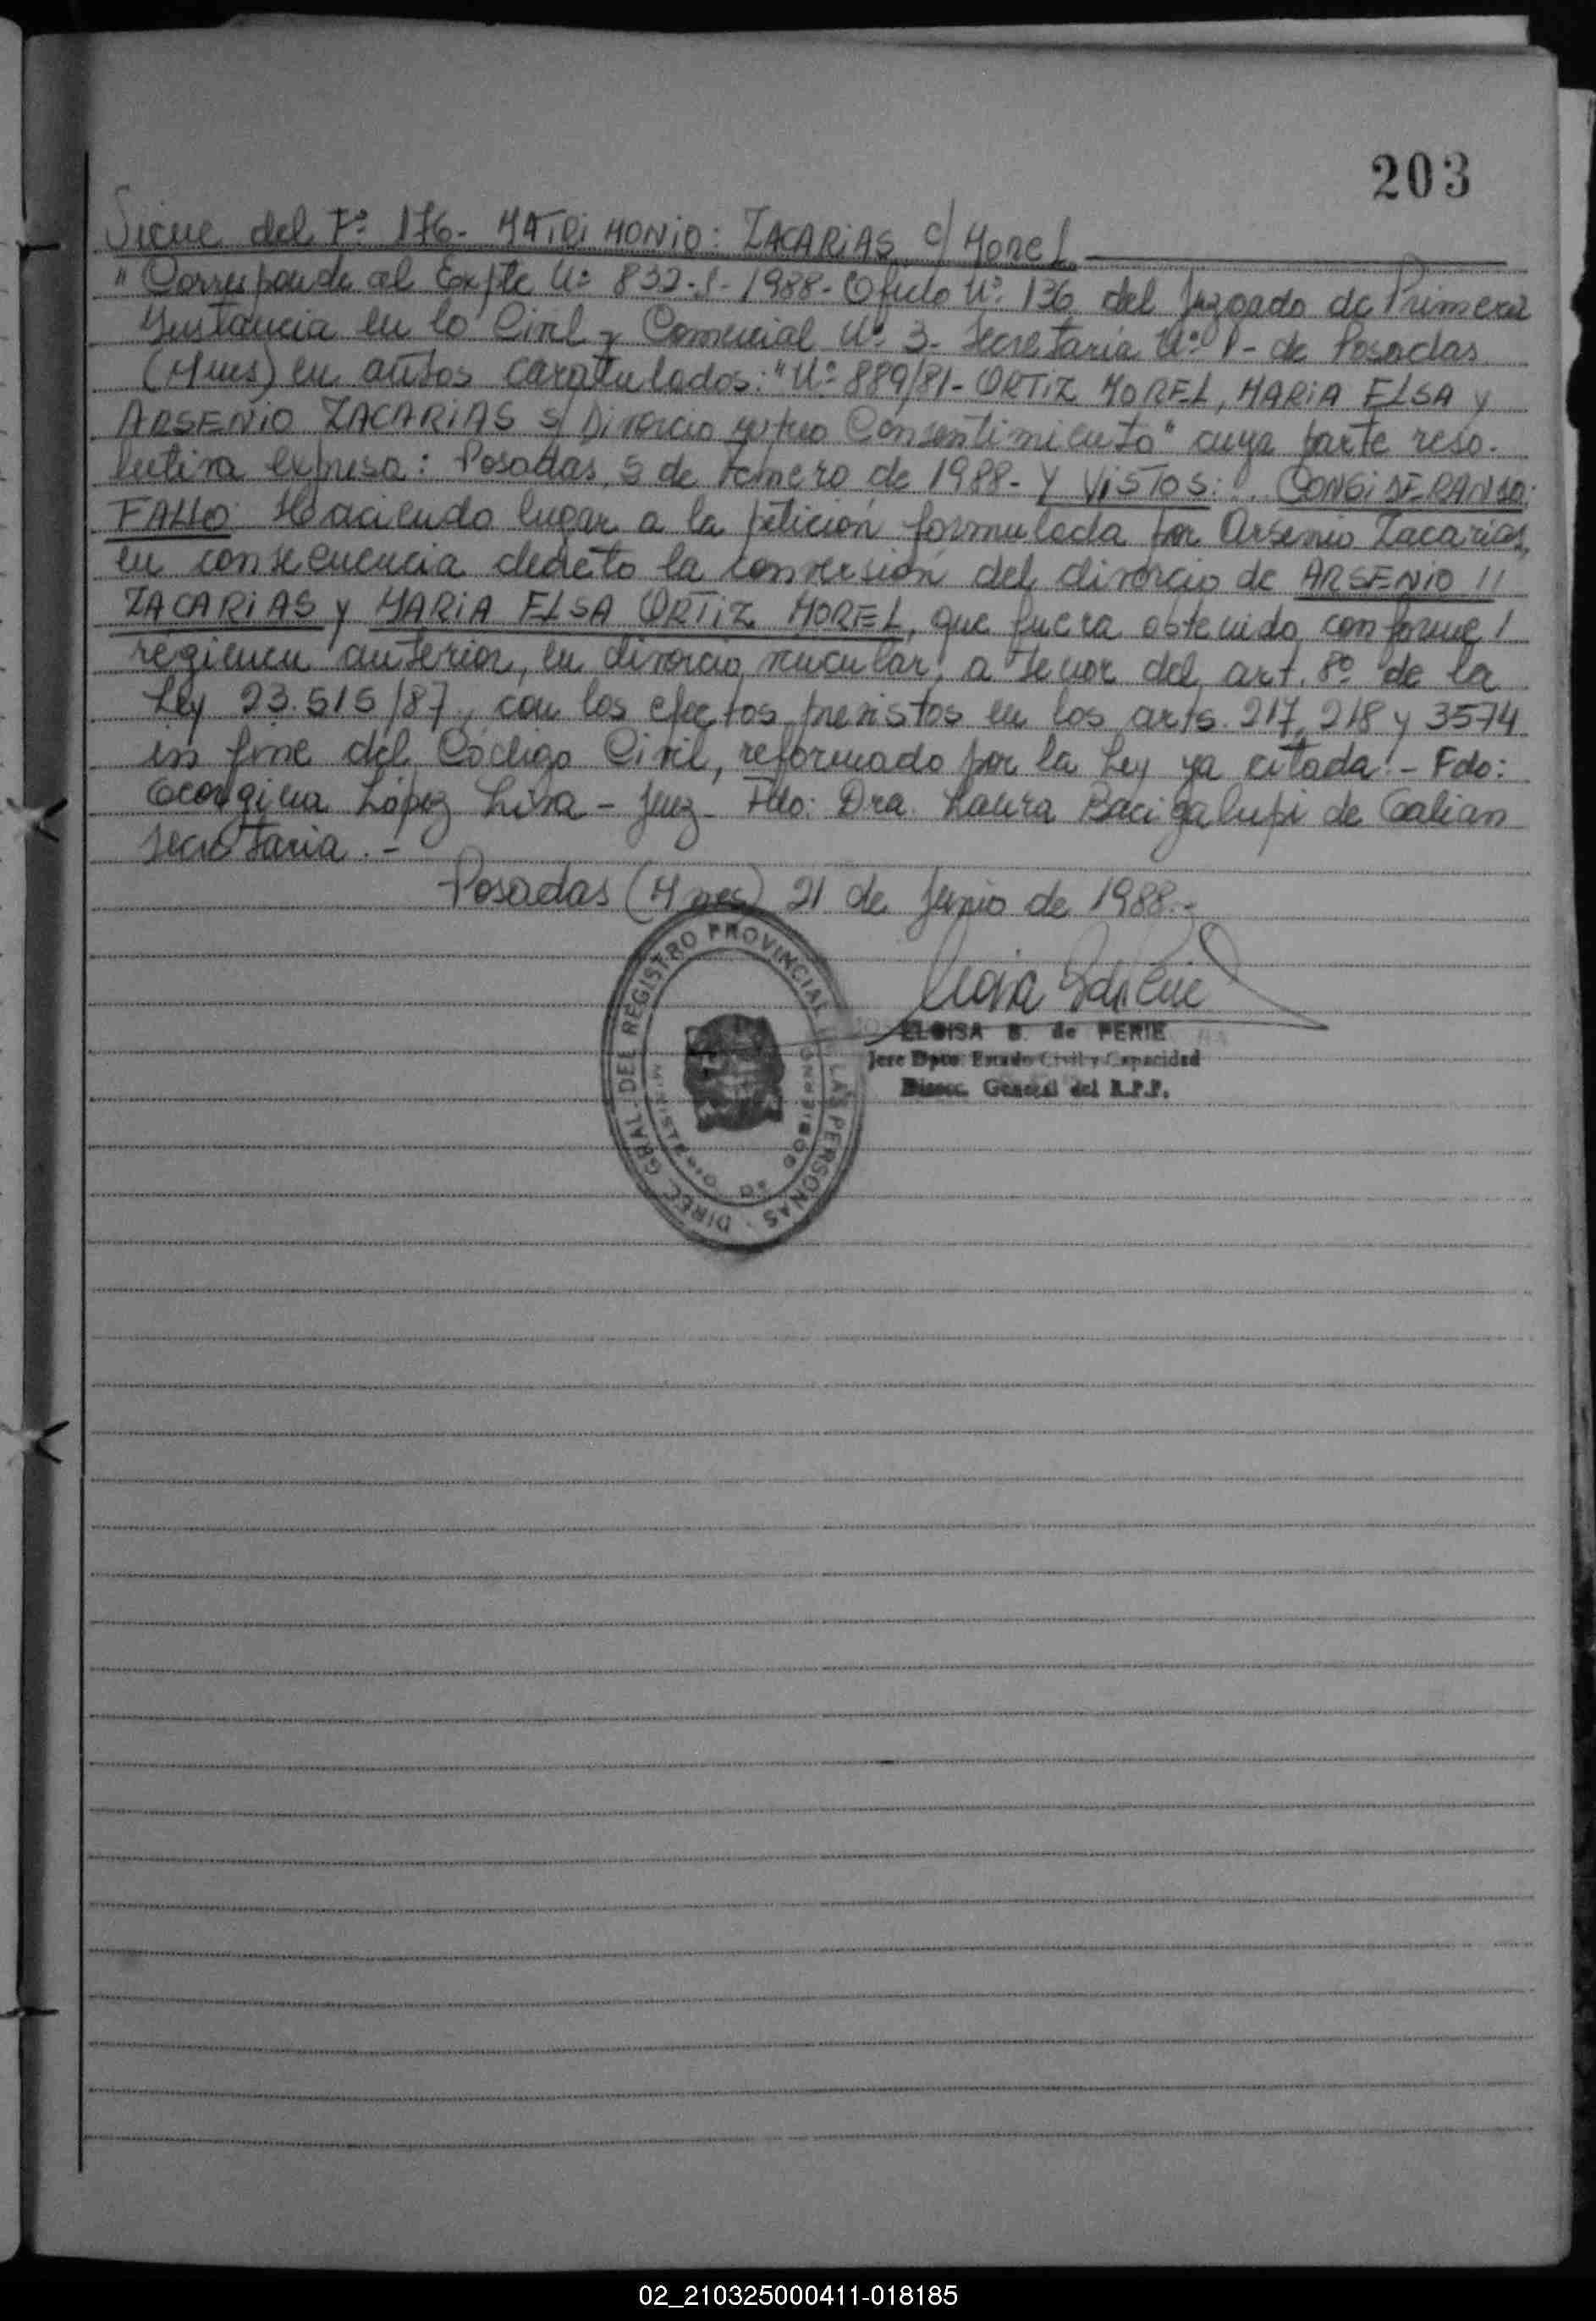 203
Sigue del Fº 176- MATRIMONIO: ZACARIAS c/ Morel
"Corresponde al Expte Nº 832-S-1988- Oficio Nº 136 del Juzgado de Primera
Instancia en lo Civil y Comercial Nº 3- Secretaria Nº 1- de Posadas
(Mnes) en autos caratulados: "Nº 889/81- ORTIZ MOREL, MARIA ELSA y
ARSENIO ZACARIAS s/ Divorcio mutuo Consentimiento" cuya parte reso-
lutiva expresa: Posadas, 5 de de 1988- Y VISTOS: .. CONSIDERANDO:
FALLO: Haciendo lugar a la petición formulada por Arsenio Zacarias,
en consecuencia decreto la conversión del divorcio de ARSENIO //
ZACARIAS y MARIA ELSA ORTIZ MOREL, que fuera obtenido conforme /
régimen anterior, en divorcio vincular, a tenor del art. 8º de la
Ley 23.515/87, con los efectos previstos en los arts. 217, 218 y 3574
in fine del Código Civil, reformado por la Ley ya citada!- Fdo:
Georgina López Liva - Juez- Fdo: Dra. Laura Bacigalupi de Galian
Secretaria.-
Posadas (Mnes) 21 de Junio de 1988.-
ELOISA B. de PERIE
Jefe Dpto. Estado Civil y Capacidad
Direcc. General del R.P.P.
DIREC. GRAL. DEL REGISTRO PROVINCIAL DE LAS PERSONAS
MINISTERIO DE GOBIERNO
02_210325000411-018185